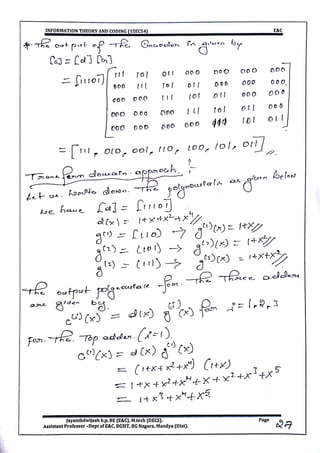 INFORMATION THEORY AND CODING (15EC54) E&C
* The output of The Encoder is given by
[c] = [d] [G]
= [11101] [111 101 011 000 000 000 000
000 111 101 011 000 000 000
000 000 111 101 011 000 000
000 000 000 111 101 011 000
000 000 000 000 111 101 011]
= [111, 010, 001, 110, 100, 101, 011]
Transform domain approach:
Let us write down The polynomials as given below
we have [d] = [11101]
d(x) = 1+x+x²+x⁴
g⁽¹⁾ = (110) → g⁽¹⁾(x) = 1+x
g⁽²⁾ = (101) → g⁽²⁾(x) = 1+x²
g⁽³⁾ = (111) → g⁽³⁾(x) = 1+x+x²
The output polynomials for The Three adders
are given by
c⁽ⁱ⁾(x) = d(x) g⁽ⁱ⁾(x) for i = 1, 2, 3
For The Top adder (i=1).
c⁽¹⁾(x) = d(x) g⁽¹⁾(x)
= (1+x+x²+x⁴) (1+x)
= 1+x+x²+x⁴+x+x²+x³+x⁵
= 1+x³+x⁴+x⁵.
Jayanthdwijesh h.p, BE (E&C), M.tech (DECS).
Assistant Professor –Dept of E&C, BGSIT, BG Nagara, Mandya (Dist).
Page 27